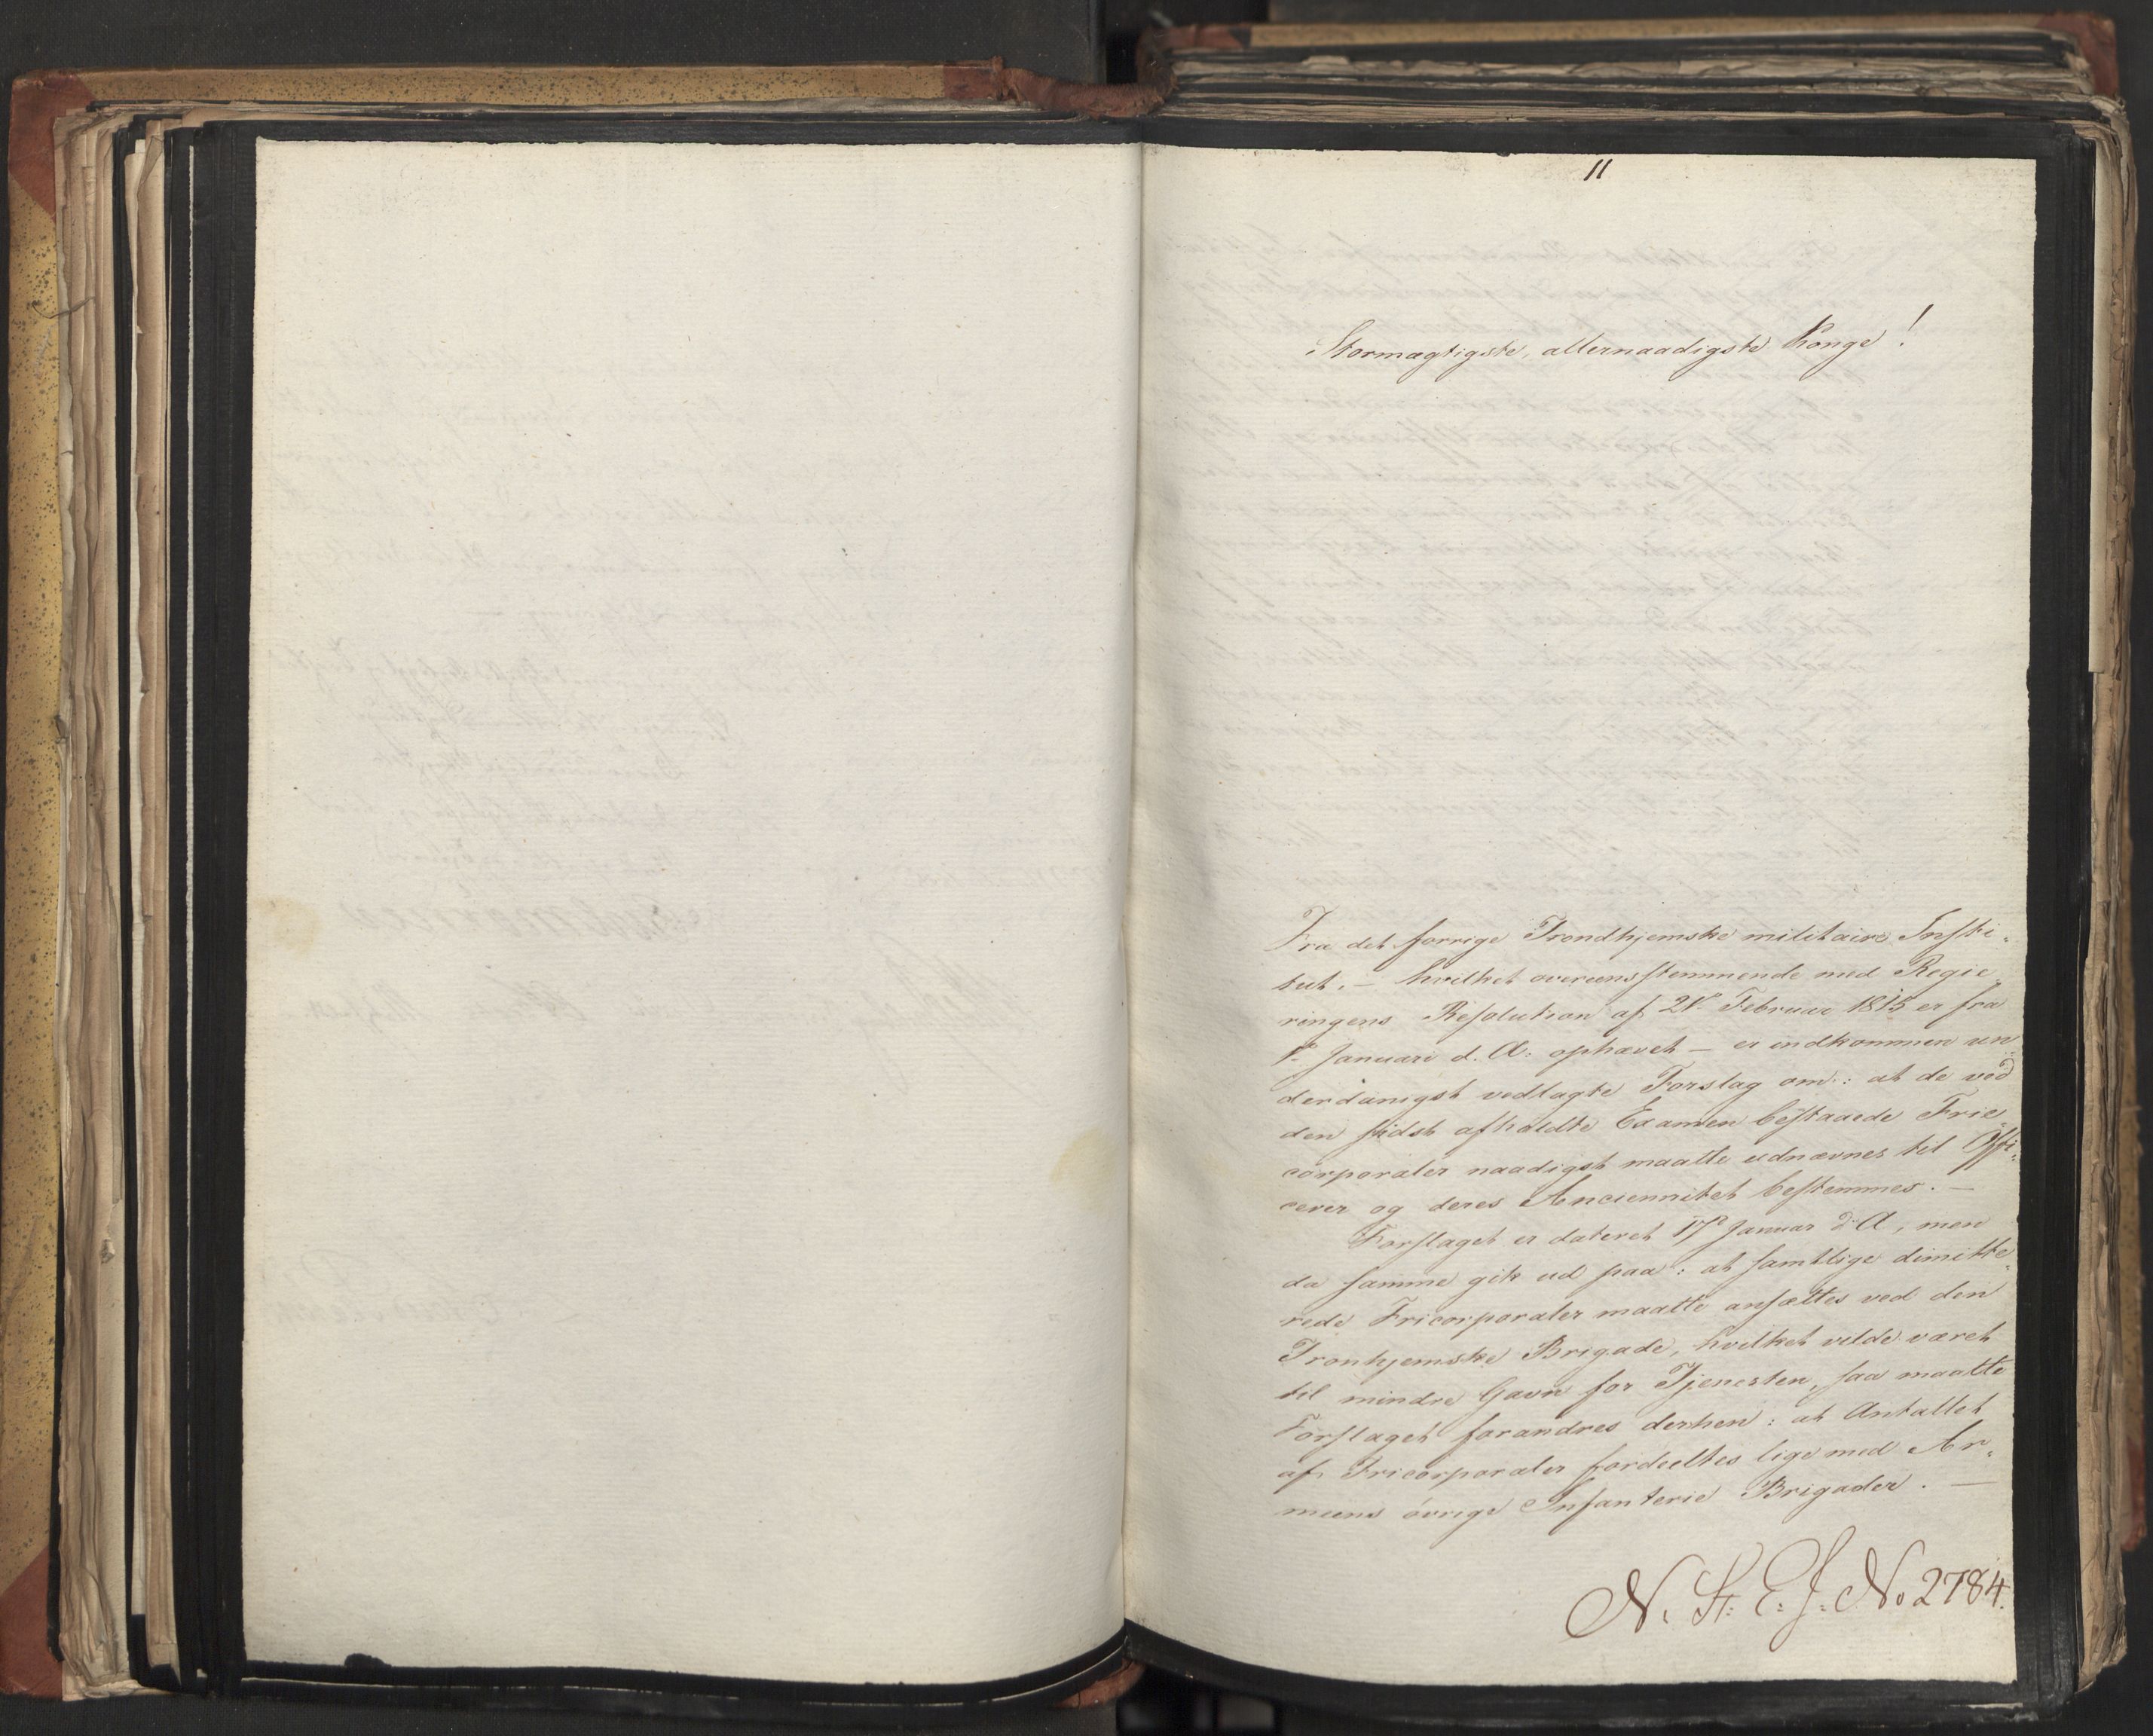 11
Stormægtigste, allernaadigste Konge!
Fra det forrige Trondhjemske militaire Insti-
tut, – hvilket overeensstemmende med Regie-
ringens Resolution af 21de Februar 1815 er fra
1ste Januari d. A: ophævet – er indkommen un-
derdanigst vedlagte Forslag om: at de ved
den sidst afholdte Examen bestaaede Frie-
corporaler naadigst maatte udnævnes til Offi-
cerer og deres Anciennitet bestemmes. –
Forslaget er dateret 17de Januar d. A, men
da samme gik ud paa: at samtlige dimitte-
rede Fricorporaler maatte ansættes ved den
Tronhjemske Brigade, hvilket vilde været
til mindre Gavn for Tjenesten, saa maatte
Forslaget forandres derhen: at Antallet
af Fricorporaler fordeeltes lige med Ar-
meens øvrige Infanterie Brigader. –
N. St: E. J. No 2784.